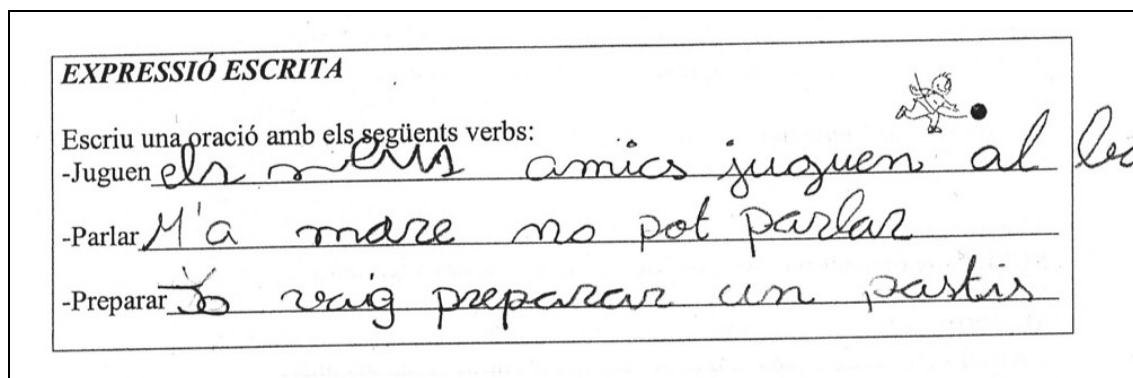 EXPRESSIÓ ESCRITA
Escriu una oració amb els següents verbs:
-Juguen els meus amics juguen al
-Parlar M'a mare no pot parlar
-Preparar Jo vaig preparar un pastis